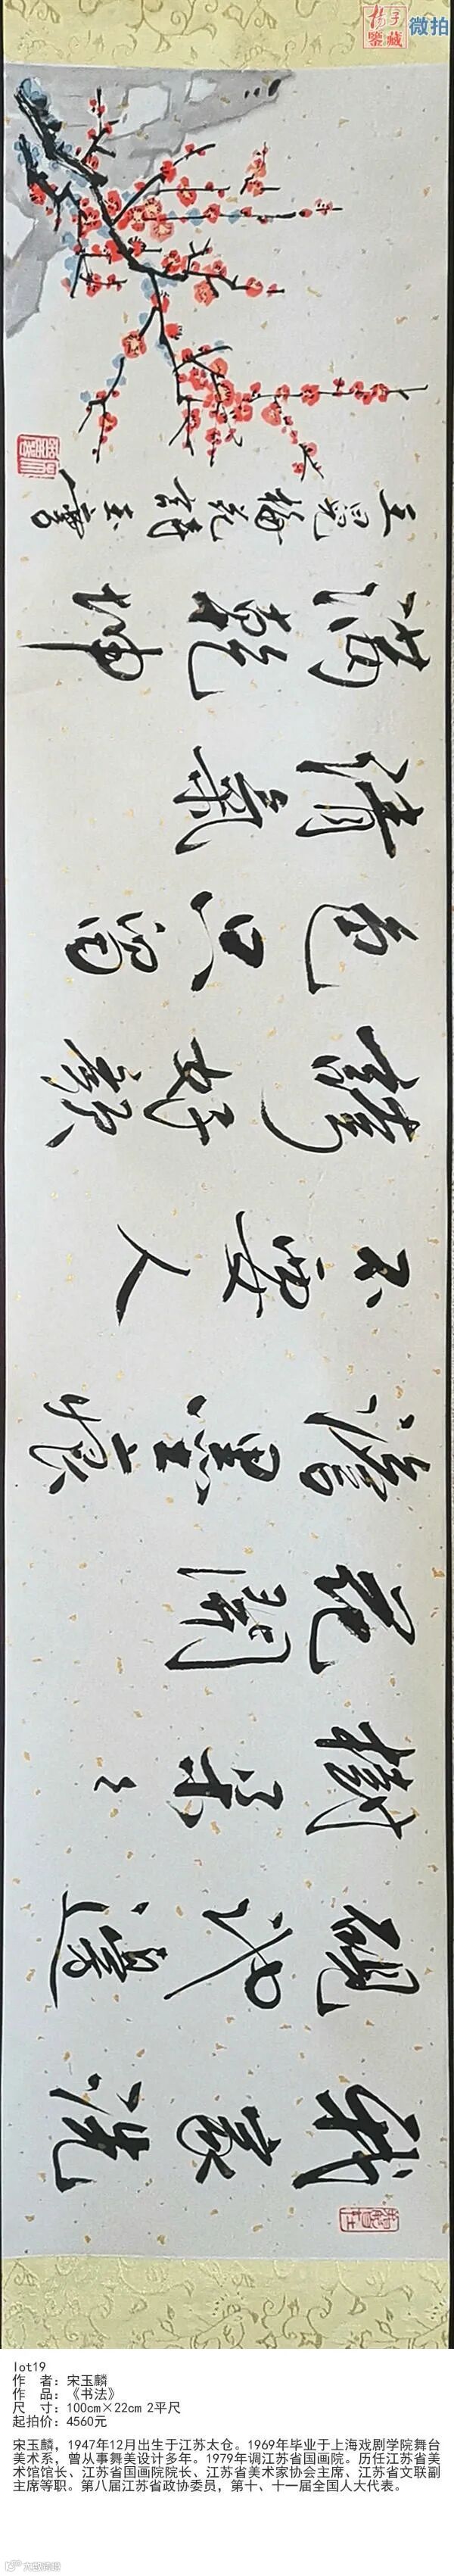 扬子鑒藏
微拍
我家洗
硯池邊
樹朵〻
花開
澹墨痕
不要人
誇好顏
色只留
清氣
滿乾坤
王冕梅花詩玉書
lot19
作 者：宋玉麟
作 品：《书法》
尺 寸：100cm×22cm 2平尺
起拍价：4560元
宋玉麟，1947年12月出生于江苏太仓。1969年毕业于上海戏剧学院舞台
美术系，曾从事舞美设计多年。1979年调江苏省国画院。历任江苏省美
术馆馆长、江苏省国画院院长、江苏省美术家协会主席、江苏省文联副
主席等职。第八届江苏省政协委员，第十、十一届全国人大代表。